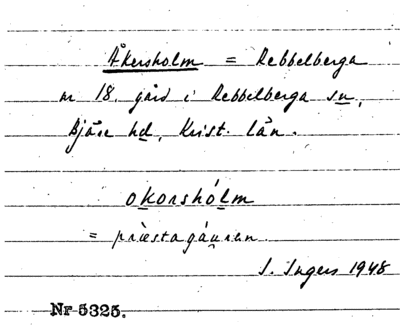 Åkersholm = Rebbelberga
nr 18. gård i Rebbelberga sn,
Bjäre hd, Krist. län.
okorshólm
= prìestagáu̯ren.
I. Ingers 1948
Nr 5325.